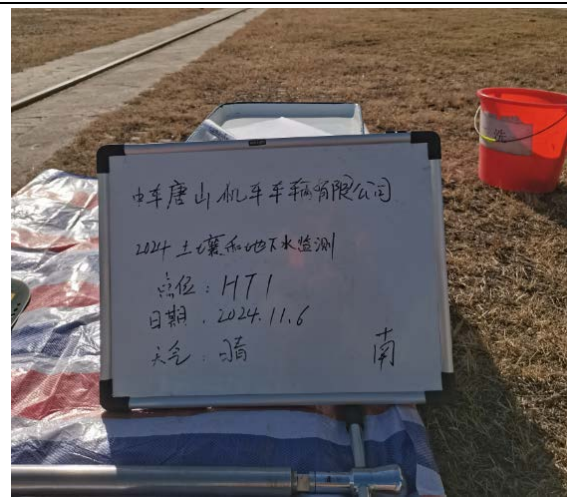 中车唐山机车车辆有限公司
2024土壤和地下水监测
点位：HT1
日期：2024.11.6
天气：晴
南
洗